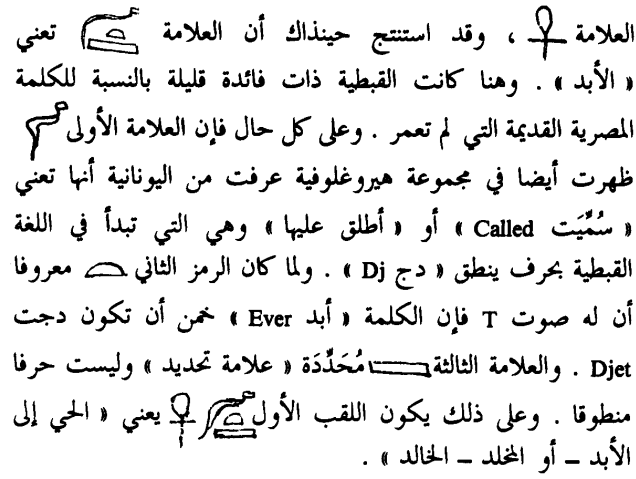 العلامة ، وقد استنتج حينذاك أن العلامة تعني
« الأبد » . وهنا كانت القبطية ذات فائدة قليلة بالنسبة للكلمة
المصرية القديمة التي لم تعمر . وعلى كل حال فإن العلامة الأولى
ظهرت أيضا في مجموعة هيروغلوفية عرفت من اليونانية أنها تعني
« سُمِّيَت Called » أو « أطلق عليها » وهي التي تبدأ في اللغة
القبطية بحرف ينطق « دج Dj » . ولما كان الرمز الثاني معروفا
أن له صوت T فإن الكلمة « أبد Ever » خمن أن تكون دجت
Djet . والعلامة الثالثة مُحَدِّدَة « علامة تحديد » وليست حرفا
منطوقا . وعلى ذلك يكون اللقب الأول يعني « الحي إلى
الأبد – أو المخلد – الخالد » .